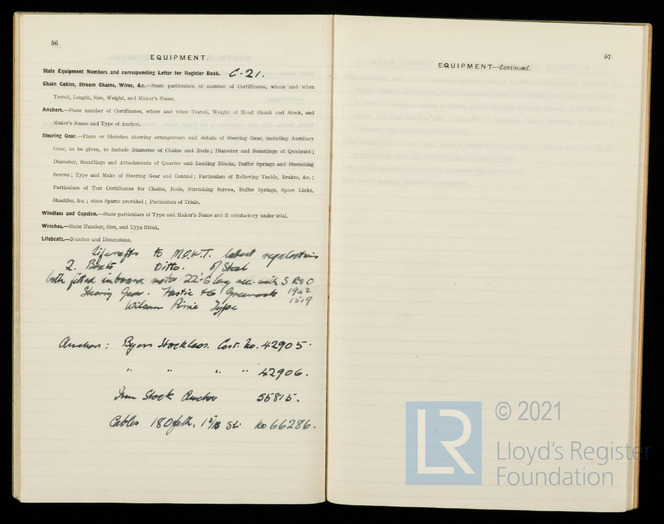 56
EQUIPMENT.
State Equipment Numbers and corresponding Letter for Register Book. C-21.
Chain Cables, Stream Chains, Wires, &c.—State particulars of number of Certificates, where and when
Tested, Length, Size, Weight, and Maker's Name.
Anchors.—State number of Certificates, where and when Tested, Weight of Head Shank and Stock, and
Maker's Name and Type of Anchor.
Steering Gear.—Plans or Sketches showing arrangement and details of Steering Gear, including Auxiliary
Gear, to be given, to include Diameter of Chains and Rods; Diameter and Scantlings of Quadrant;
Diameter, Scantlings and Attachments of Quarter and Leading Blocks, Buffer Springs and Stretching
Screws; Type and Make of Steering Gear and Control; Particulars of Relieving Tackle, Brakes, &c.;
Particulars of Test Certificates for Chains, Rods, Stretching Screws, Buffer Springs, Spare Links,
Shackles, &c.; state Spares provided; Particulars of Trials.
Windlass and Capstan.—State particulars of Type and Maker's Name and if satisfactory under trial.
Winches.—State Number, Size, and Type fitted.
Lifeboats.—Number and Dimensions.
Liferafts to M.O.W.T. latest regulations
2. Boats Ditto. of Steel
both fitted inboard motor 22-6 long
Steering Gear. Hastie & Co Greenock 1942
Wilson Pirrie Type 1519
Anchors: Byers Stockless. Cert. No. 42905.
" " " " 42906.
Iron Stock Anchor 55815.
Cables 180 fath. No 66286.
57
EQUIPMENT—Continued.
LR
© 2021
Lloyd's Register
Foundation